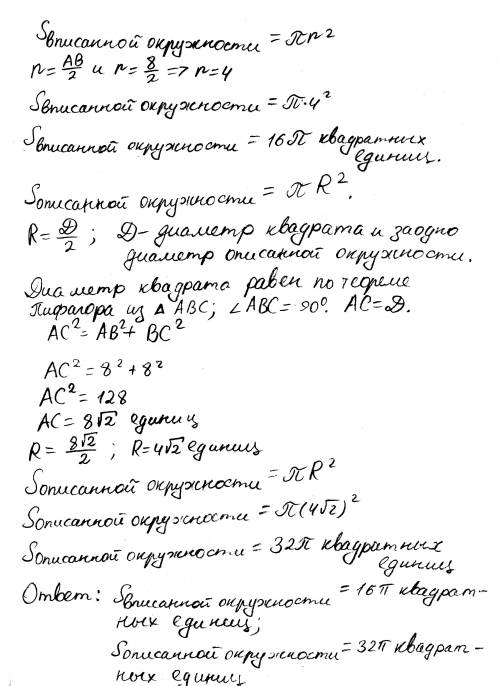 Sвписанной окружности = πr²
r = AB/2 и r = 8/2 => r = 4
Sвписанной окружности = π·4²
Sвписанной окружности = 16π квадратных
единиц.
Sописанной окружности = πR².
R = Д/2 ; Д - диаметр квадрата и заодно
диаметр описанной окружности.
Диаметр квадрата равен по теореме
Пифагора из △ ABC; ∠ABC = 90°. AC = Д.
AC² = AB² + BC²
AC² = 8² + 8²
AC² = 128
AC = 8√2 единиц
R = 8√2/2 ; R = 4√2 единиц
Sописанной окружности = πR²
Sописанной окружности = π(4√2)²
Sописанной окружности = 32π квадратных
единиц
Ответ: Sвписанной окружности = 16π квадрат-
ных единиц;
Sописанной окружности = 32π квадрат-
ных единиц